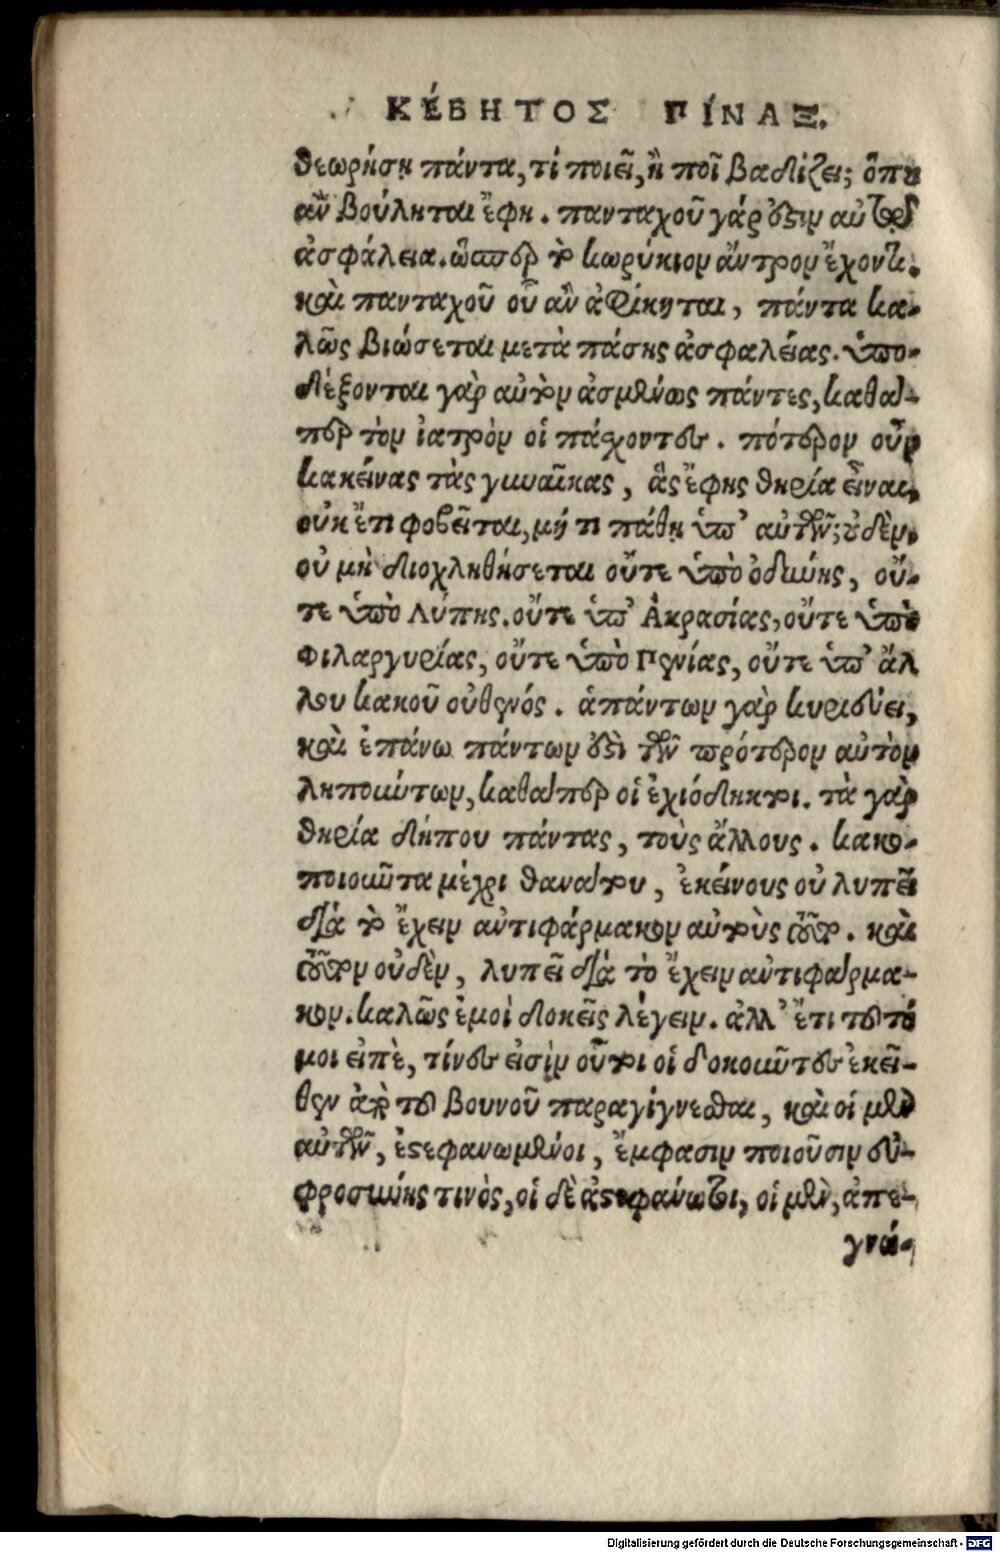 ΚΈΒΗΤΟΣ ΠΊΝΑΞ.
θεωρήσῃ πάντα, τί ποιεῖ, ἢ ποῖ βαδίζει; ὅπη
ἂν βούληται ἔφη. πανταχοῦ γάρ ἐστιν αὐτῷ
ἀσφάλεια. ὥσπερ τὸ κωρύκιον ἄντρον ἔχοντι.
καὶ πανταχοῦ οὗ ἂν ἀφίκηται, πάντα κα-
λῶς βιώσεται μετὰ πάσης ἀσφαλείας. ὑπο-
δέξονται γὰρ αὐτὸν ἀσμένως πάντες, καθά-
περ τὸν ἰατρὸν οἱ πάσχοντες. πότερον οὖν
κακείνας τὰς γυναῖκας, ἃς ἔφης θηρία εἶναι,
οὐκ ἔτι φοβεῖται, μή τι πάθῃ ὑπ' αὐτῶν; οὐδέν.
οὐ μὴ διοχληθήσεται οὔτε ὑπὸ ὀδύνης, οὔ-
τε ὑπὸ Λύπης. οὔτε ὑπ' Ἀκρασίας, οὔτε ὑπὸ
Φιλαργυρίας, οὔτε ὑπὸ Πενίας, οὔτε ὑπ' ἄλ
λου κακοῦ οὐθενός. ἁπάντων γὰρ κυριεύει,
καὶ ἐπάνω πάντων ἐστὶ τῶν πρότερον αὐτὸν
λυπούντων, καθάπερ οἱ ἐχιόδηκτοι. τὰ γὰρ
θηρία δήπου πάντας, τοὺς ἄλλους. κακο-
ποιοῦντα μέχρι θανάτου, ἐκείνους οὐ λυπεῖ
διὰ τὸ ἔχειν αὐτιφάρμακον αὐτοὺς οὕτω. καὶ
τοῦτον οὐδὲν, λυπεῖ διὰ τὸ ἔχειν αὐτιφάρμα-
κον. καλῶς ἐμοὶ δοκεῖς λέγειν. ἀλλ' ἔτι τοῦτό
μοι εἰπὲ, τίνες εἰσὶν οὗτοι οἱ δοκοῦντες ἐκεῖ-
θεν ἀπὸ τοῦ βουνοῦ παραγίγνεσθαι, καὶ οἱ μὲν
αὐτῶν, ἐστεφανωμένοι, ἔμφασιν ποιοῦσιν εὐ-
φροσύνης τινὸς, οἱ δὲ ἀστεφάνωτοι, οἱ μὲν, ἀπε-
γνώ-
Digitalisierung gefördert durch die Deutsche Forschungsgemeinschaft - DFG